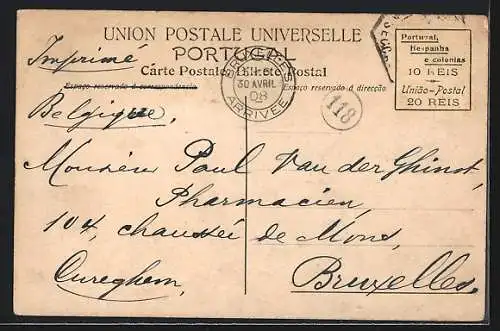 UNION POSTALE UNIVERSELLE
PORTUGAL
Carte Postale Bilhete Postal
Espaço reservado á correspondencia
Espaço reservado á direcção
Imprimé
Belgique,
BRUXELLES
30 AVRIL
08
ARRIVÉE
118
Portugal,
Hespanha
e colonias
10 REIS
União-Postal
20 REIS
Monsieur Paul Van der Ghinst,
Pharmacien,
104, chaussée de Mons,
Cureghem,
Bruxelles.